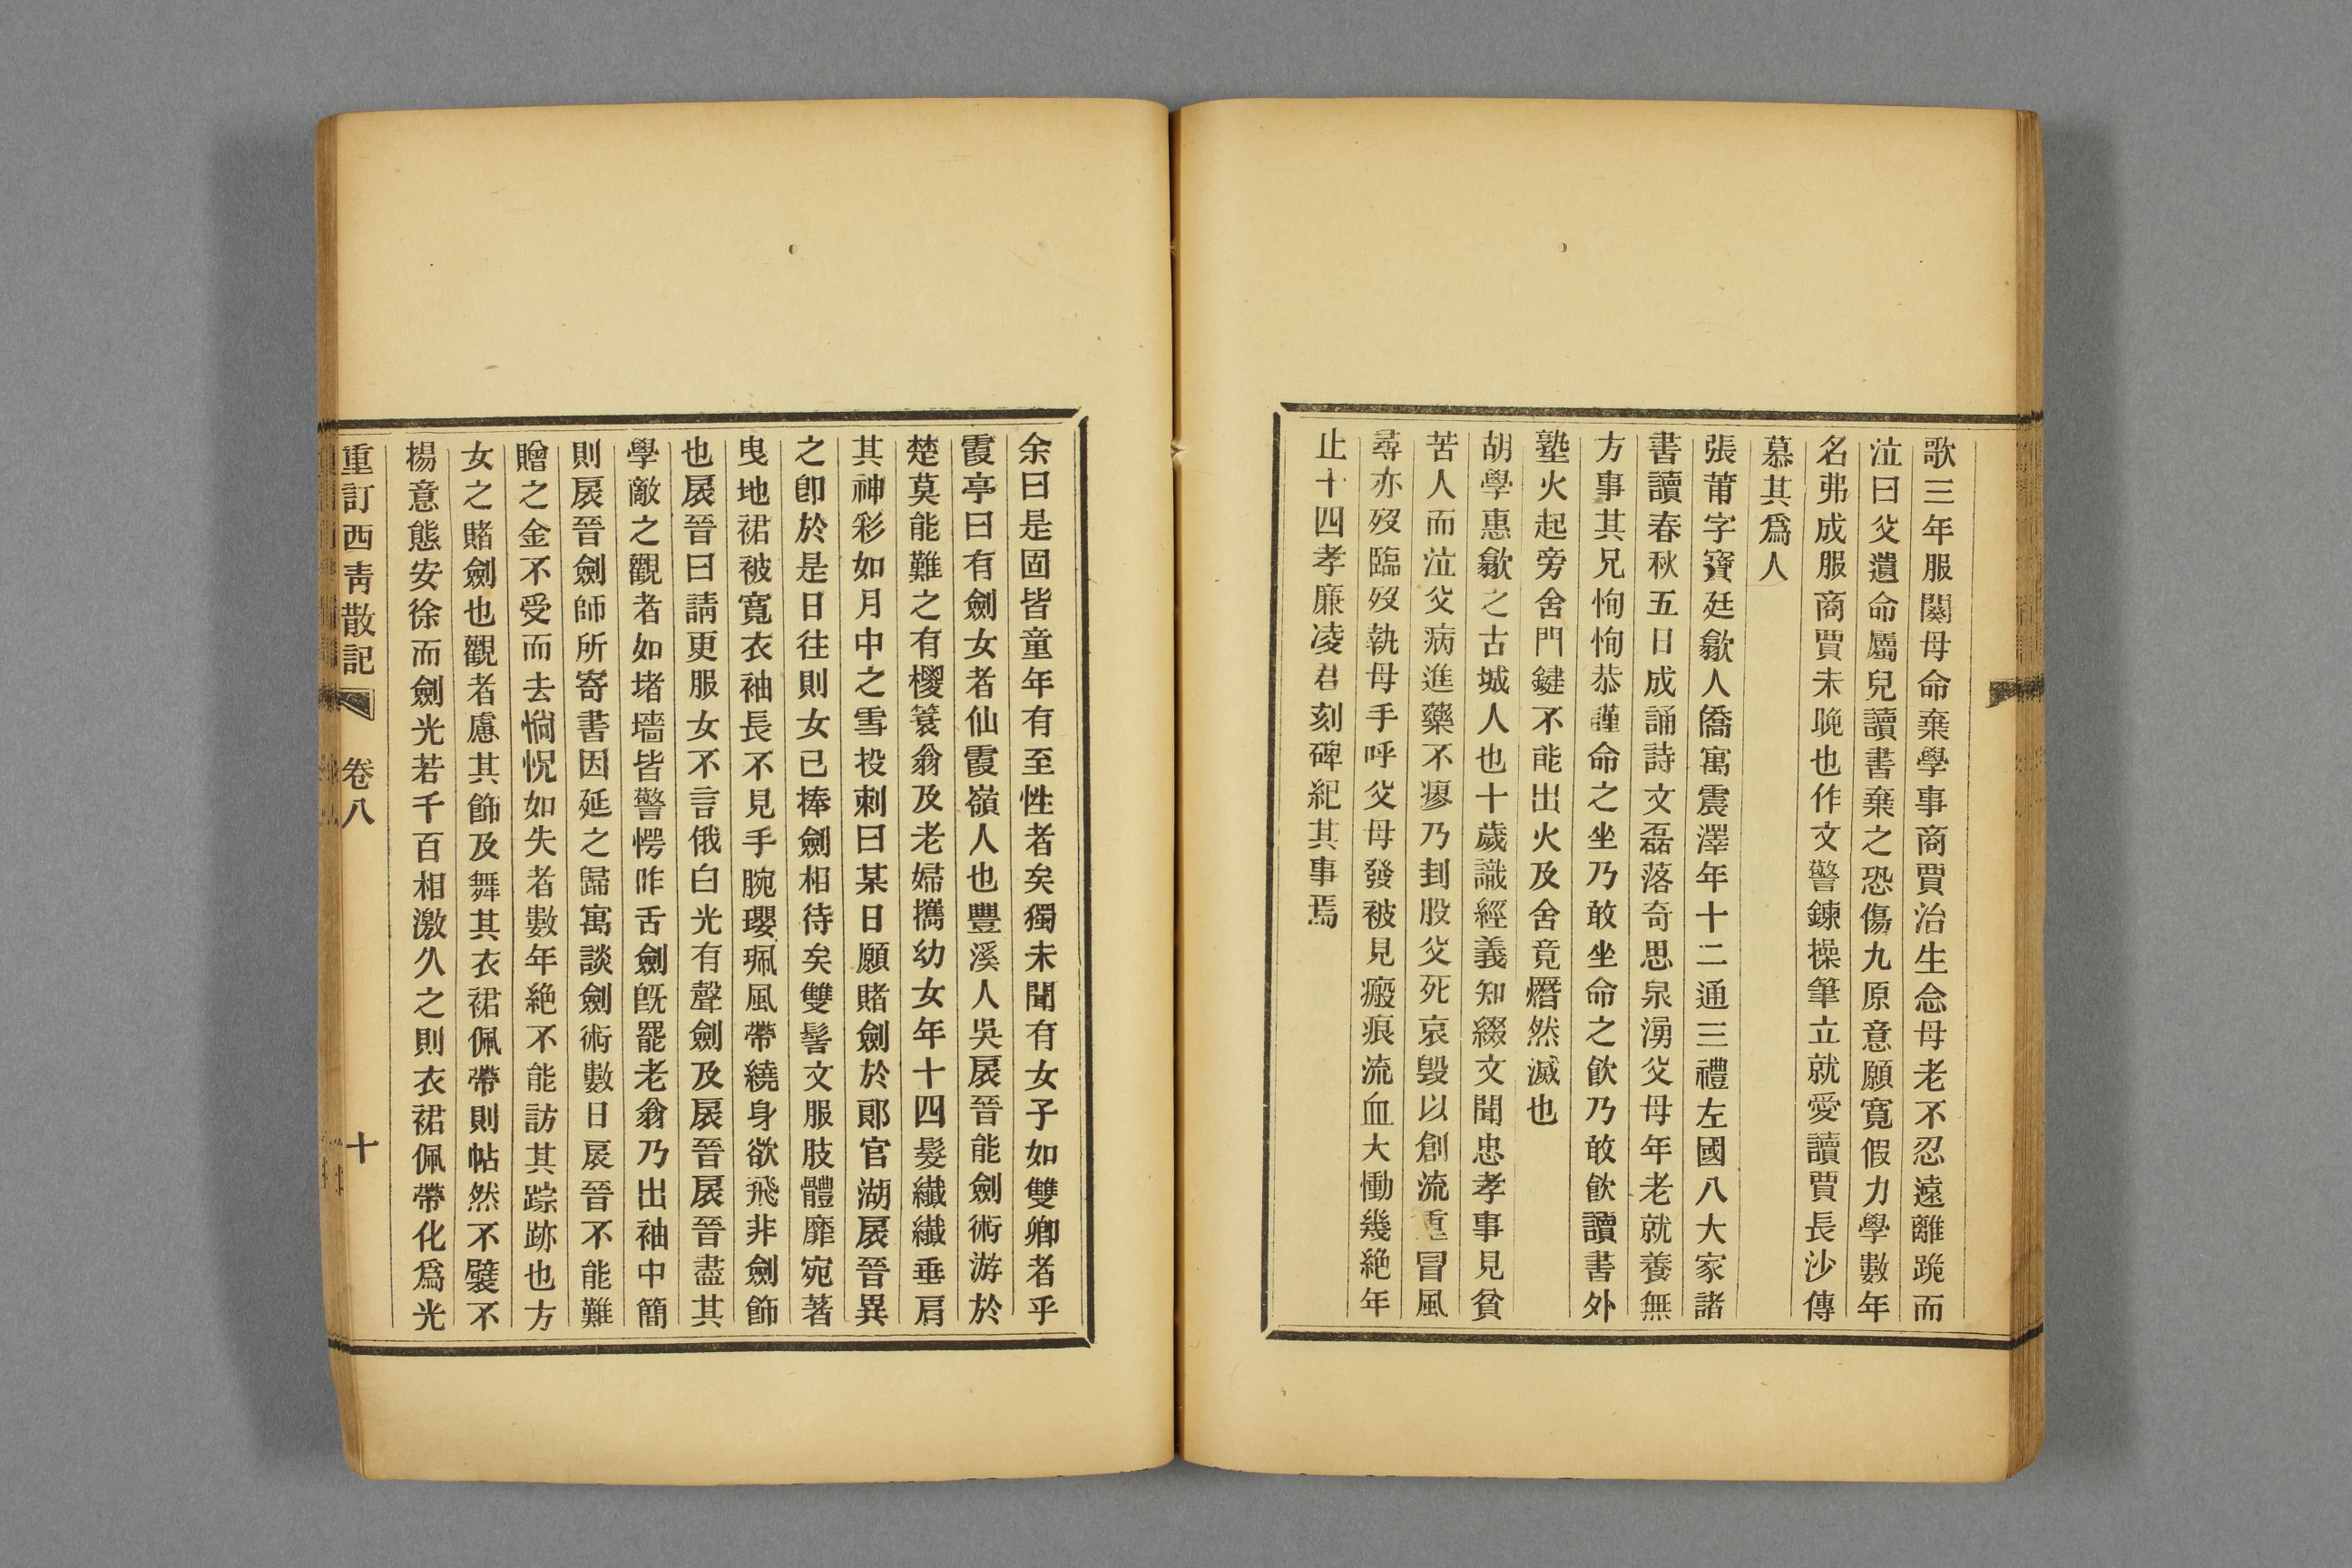 歌三年服闋母命棄學事商賈治生念母老不忍遠離跪而
泣曰父遺命屬兒讀書棄之恐傷九原意願寬假力學數年
名弗成服商賈未晚也作文警鍊操筆立就愛讀賈長沙傳
慕其爲人
張莆字寶廷歙人僑寓震澤年十二通三禮左國八大家諸
書讀春秋五日成誦詩文磊落奇思泉湧父母年老就養無
方事其兄恂恂恭謹命之坐乃敢坐命之飲乃敢飲讀書外
塾火起旁舍門鍵不能出火及舍竟熸然滅也
胡學惠歙之古城人也十歲識經義知綴文聞忠孝事見貧
苦人而泣父病進藥不瘳乃刲股父死哀毀以創流重冒風
尋亦歿臨歿執母手呼父母發被見瘢痕流血大慟幾絶年
止十四孝廉凌君刻碑紀其事焉
余曰是固皆童年有至性者矣獨未聞有女子如雙卿者乎
霞亭曰有劍女者仙霞嶺人也豐溪人吳扆晉能劍術游於
楚莫能難之有椶簑翁及老婦攜幼女年十四髮纖纖垂肩
其神彩如月中之雪投刺曰某日願賭劍於郞官湖扆晉異
之卽於是日往則女已捧劍相待矣雙髻文服肢體靡宛著
曳地裙被寬衣袖長不見手腕瓔珮風帶繞身欲飛非劍飾
也扆晉曰請更服女不言俄白光有聲劍及扆晉扆晉盡其
學敵之觀者如堵墻皆警愕咋舌劍旣罷老翁乃出袖中簡
則扆晉劍師所寄書因延之歸寓談劍術數日扆晉不能難
贈之金不受而去惝怳如失者數年絶不能訪其踪跡也方
女之賭劍也觀者慮其飾及舞其衣裙佩帶則帖然不襞不
揚意態安徐而劍光若千百相激久之則衣裙佩帶化爲光
重訂西靑散記 卷八 十